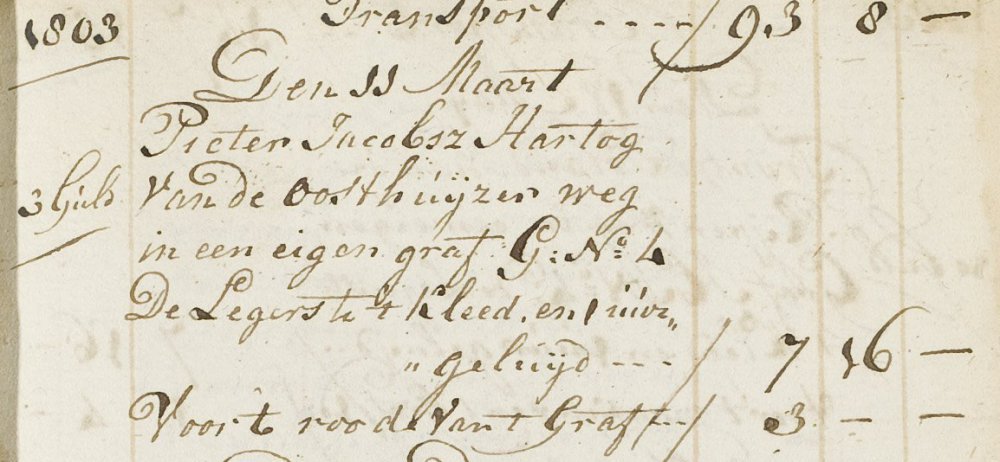 1803 Transport ---- / 93 8 —
Den 11 Maart /
Pieter Jacobsz Hartog
3 Guld van de Oosthuijzer weg
in een eigen graf G: No 4
De Legerste 't kleed, en 1 uur„
„geluijd --- / 7 16 —
Voor t rood van t Graf --/ 3 — —